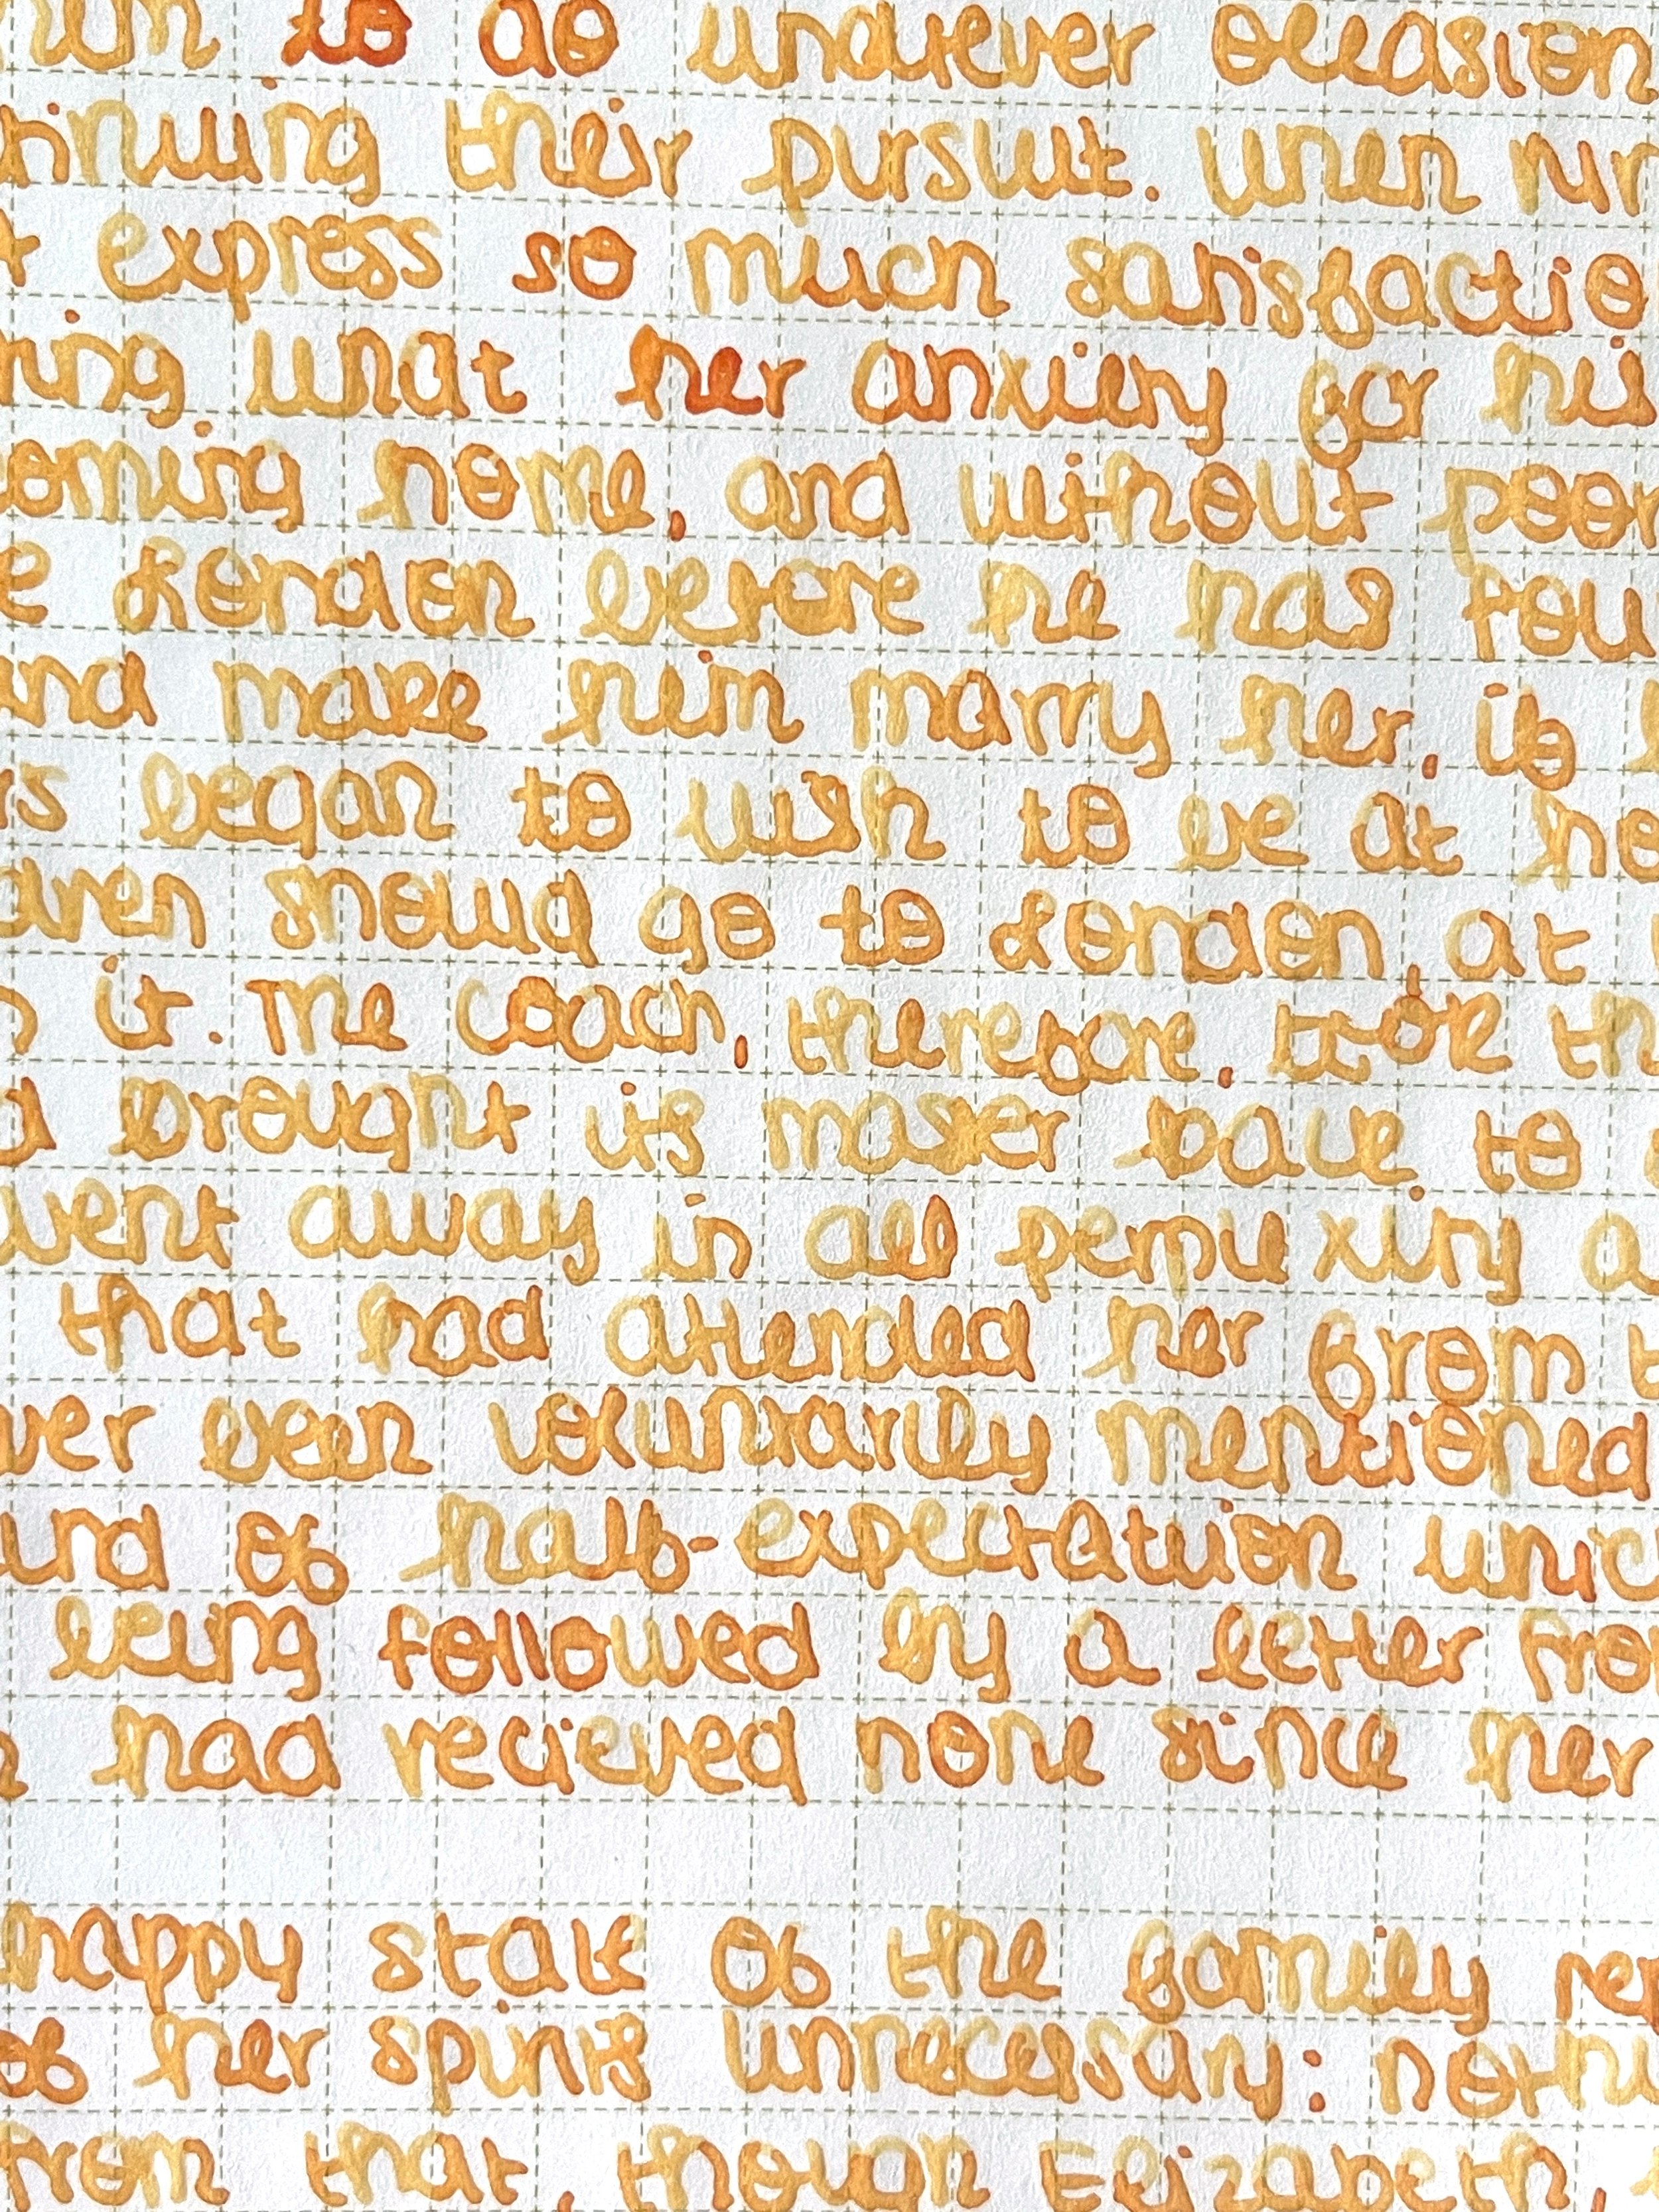 him to do whatever occasion
tinuing their pursuit. When Mr
t express so much satisfactio
ring what her anxiety for his
oming home, and without poor
e London before he has fou
and make him marry her, is
rs began to wish to be at ho
dren should go to London, at
m it. The coach, therefore, took th
d brought its master back to
went away in all perplexity a
that had attended her from t
ver been voluntarily mentioned
ind of half-expectation whic
being followed by a letter fro
had recieved none since her
happy state of the family ren
of her spirits unnecessary: nothi
from that, though Elizabeth,